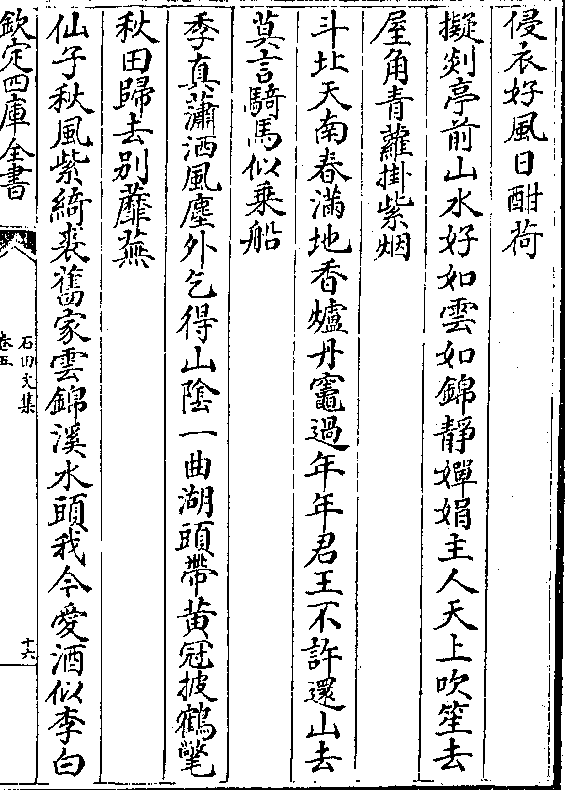 侵衣好風日酣荷
擬剡亭前山水好如雲如錦靜嬋娟主人天上吹笙去
屋角青蘿掛紫烟
斗北天南春滿地香爐丹竈過年年君王不許還山去
莫言騎馬似乗船
季真瀟洒風塵外乞得山隂一曲湖頭帶黄冠披鶴氅
秋田歸去别蘼蕪
仙子秋風紫綺裘舊家雲錦溪水頭我今愛酒似李白
欽定四庫全書
石田文集
卷五
十六